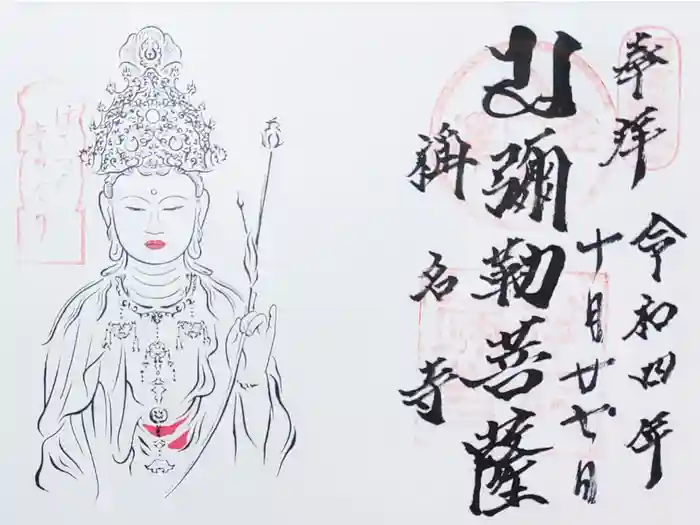 奉拝
令和四年
十月廿七日
彌勒菩薩
称名寺